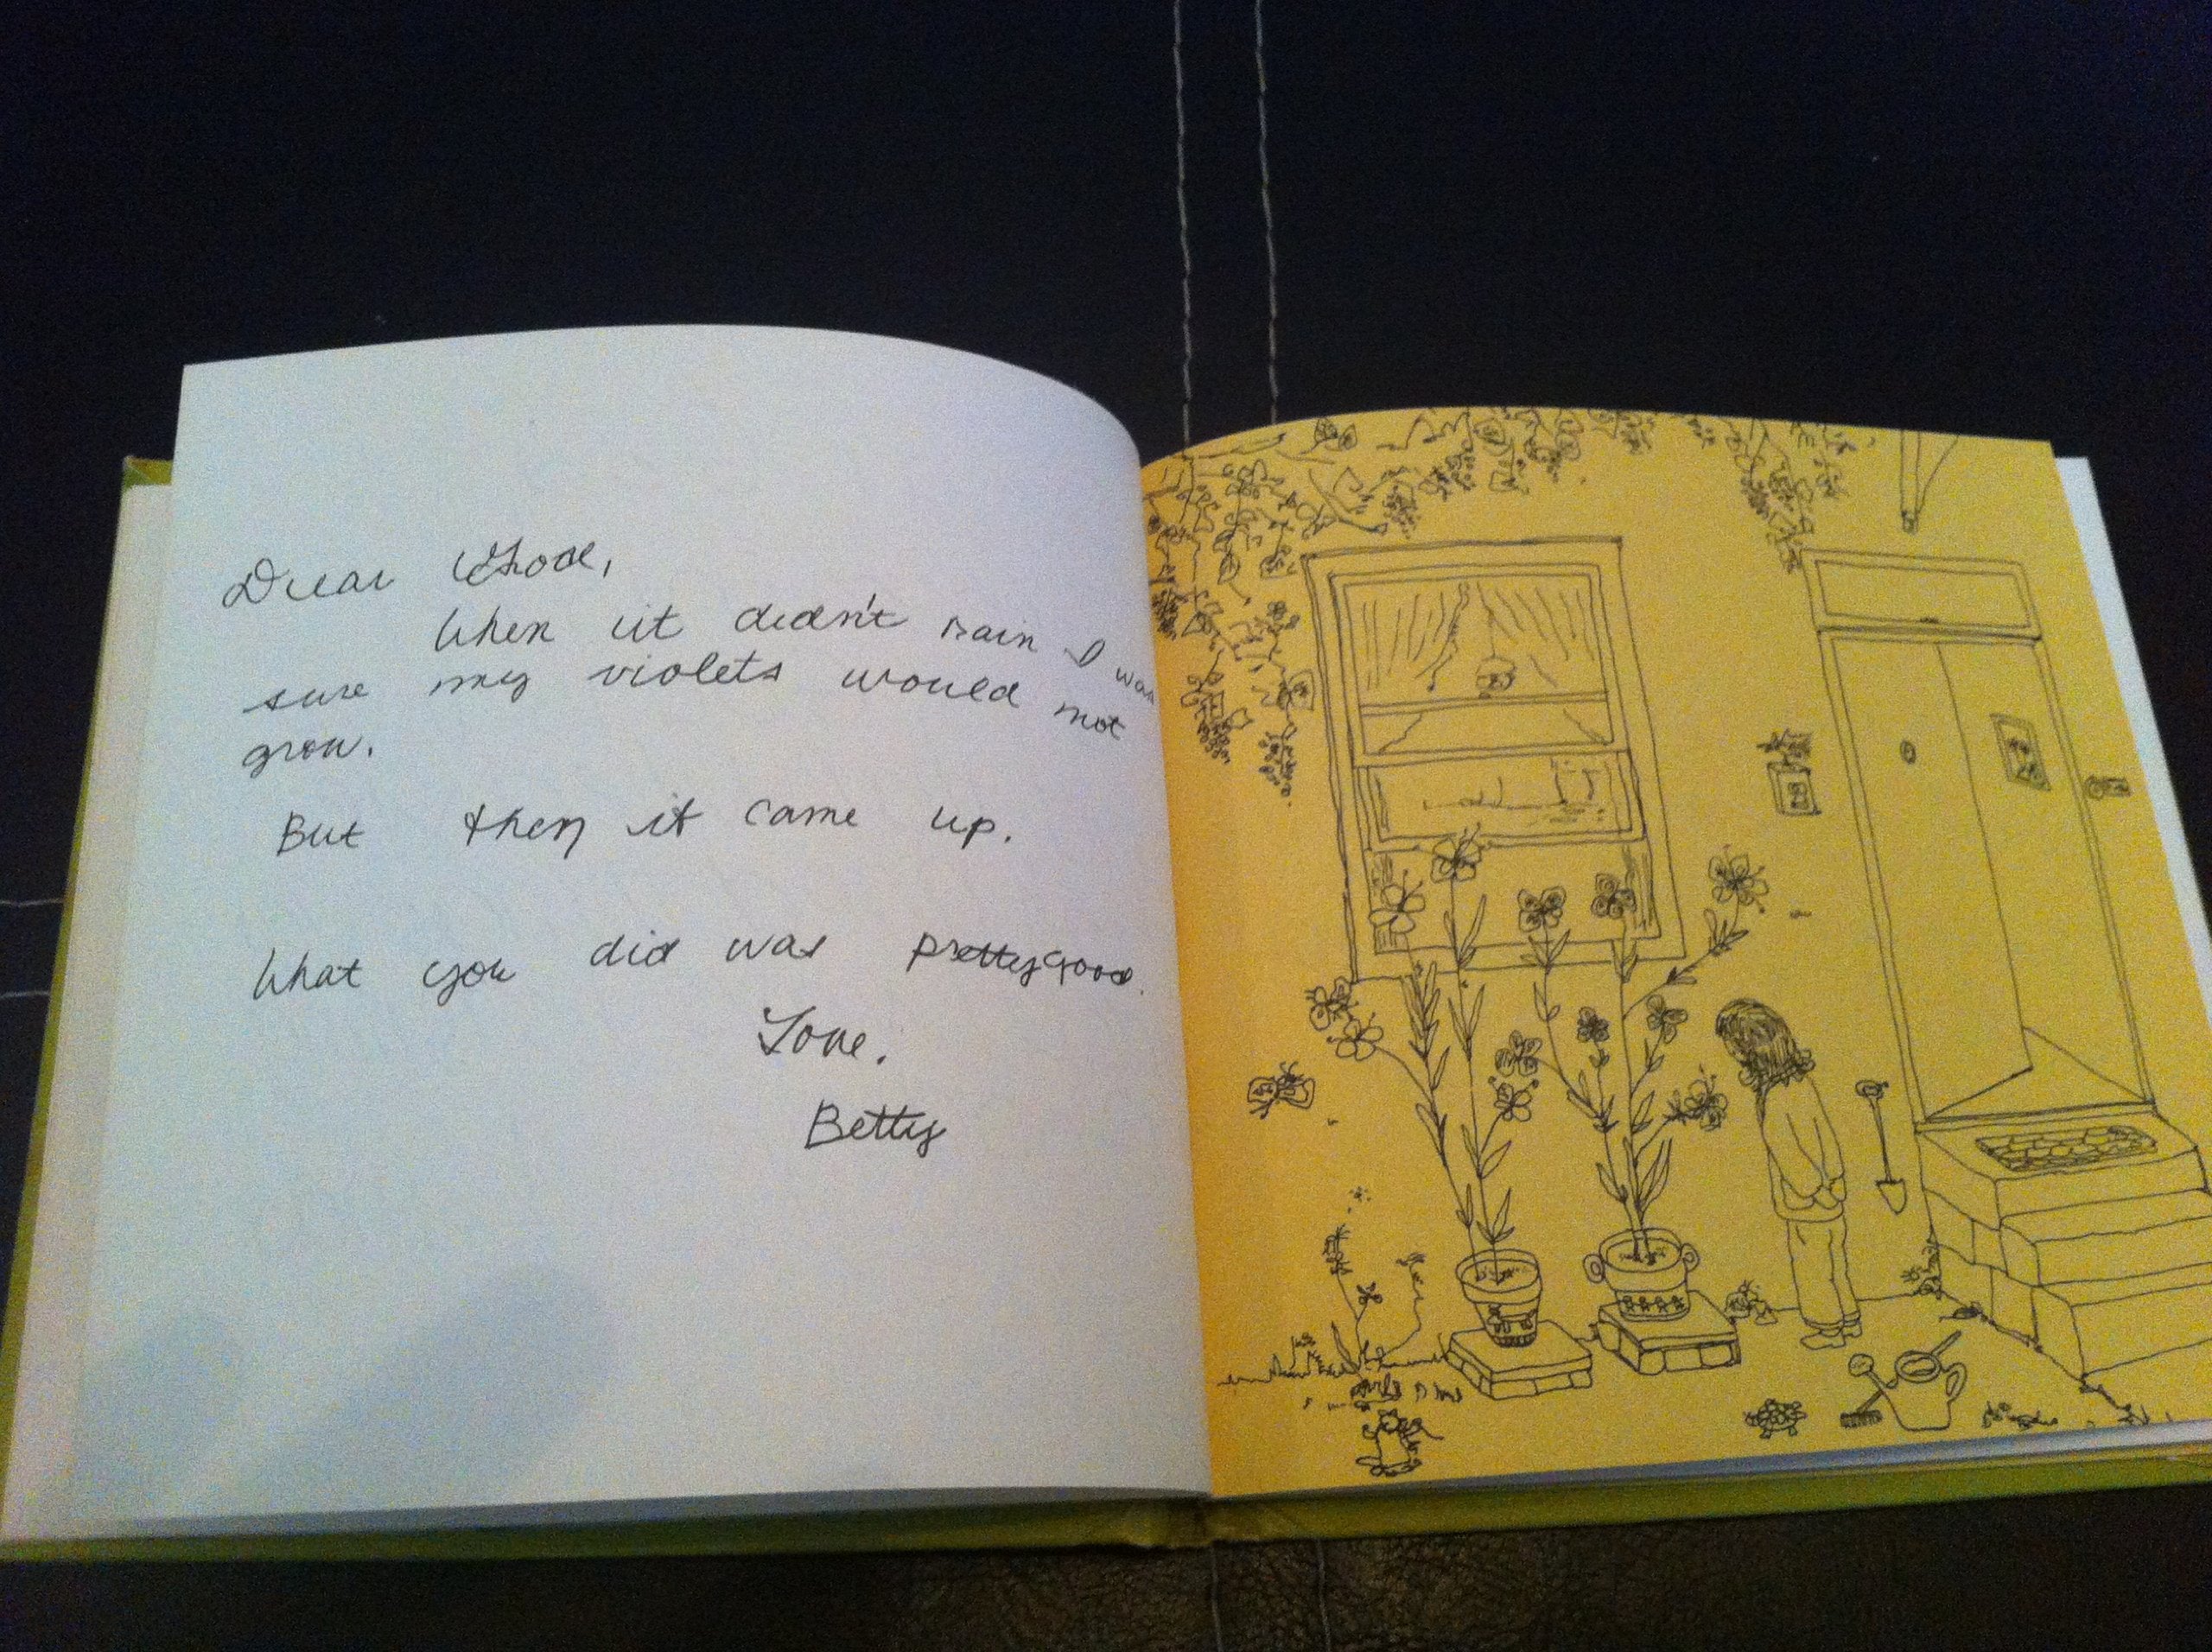 Dear
When it didn't rain I was
sure my violets would not
grow.
But then it came up.
What you did was pretty good.
Love.
Betty